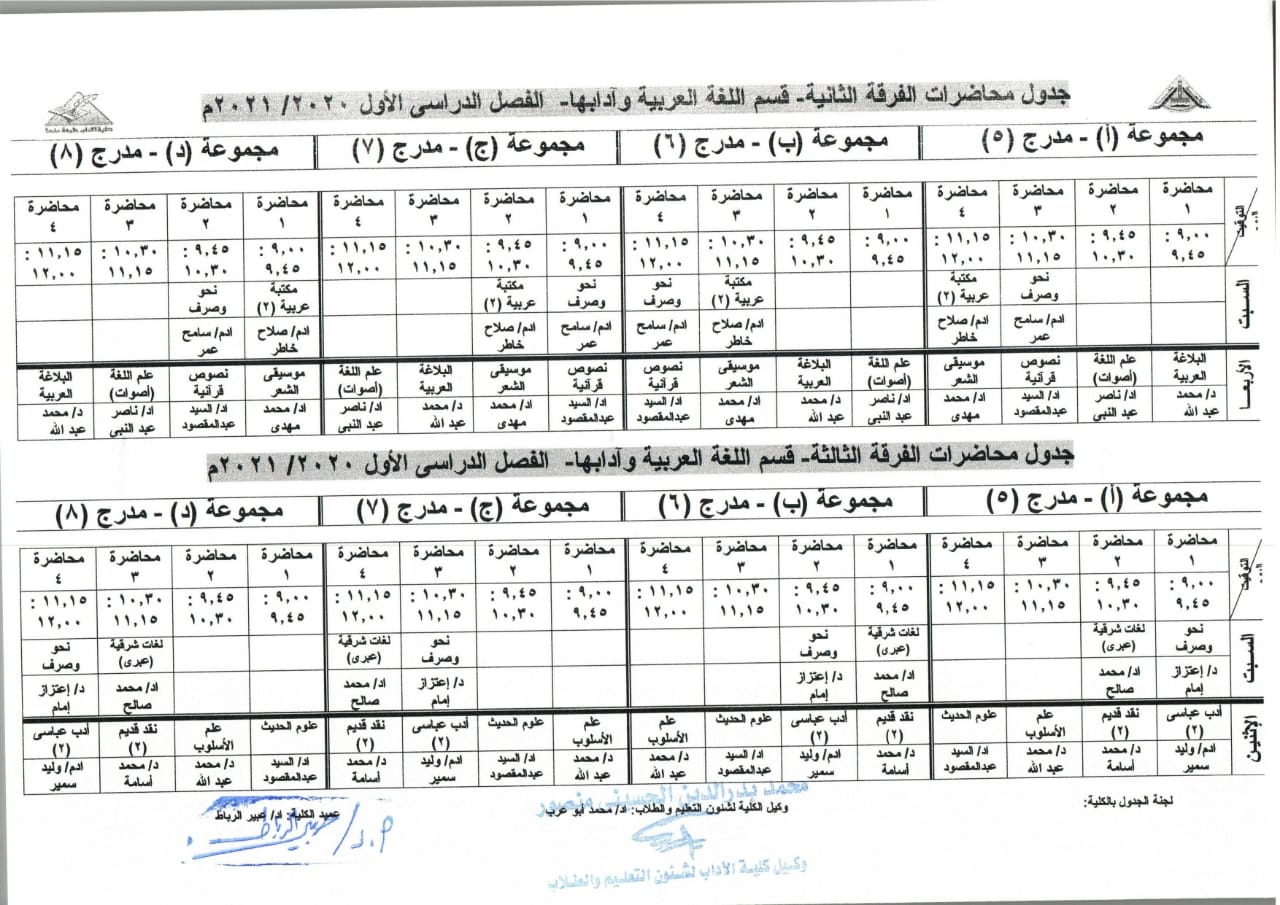 جدول محاضرات الفرقة الثانية- قسم اللغة العربية وآدابها- الفصل الدراسى الأول ٢٠٢٠/ ٢٠٢١م
كلية الآداب جامعة طنطا
مجموعة (أ)- مدرج (٥) مجموعة (ب)- مدرج (٦) مجموعة (ج)- مدرج (٧) مجموعة (د)- مدرج (٨)
التوقيت محاضرة محاضرة محاضرة محاضرة محاضرة محاضرة محاضرة محاضرة محاضرة محاضرة محاضرة محاضرة محاضرة محاضرة محاضرة محاضرة
١ ٢ ٣ ٤ ١ ٢ ٣ ٤ ١ ٢ ٣ ٤ ١ ٢ ٣ ٤
٩,٠٠ : ٩,٤٥ : ١٠,٣٠ : ١١,١٥ : ٩,٠٠ : ٩,٤٥ : ١٠,٣٠ : ١١,١٥ : ٩,٠٠ : ٩,٤٥ : ١٠,٣٠ : ١١,١٥ : ٩,٠٠ : ٩,٤٥ : ١٠,٣٠ : ١١,١٥ :
٩,٤٥ ١٠,٣٠ ١١,١٥ ١٢,٠٠ ٩,٤٥ ١٠,٣٠ ١١,١٥ ١٢,٠٠ ٩,٤٥ ١٠,٣٠ ١١,١٥ ١٢,٠٠ ٩,٤٥ ١٠,٣٠ ١١,١٥ ١٢,٠٠
السبت نحو مكتبة مكتبة نحو نحو مكتبة مكتبة نحو
وصرف عربية (٢) عربية (٢) وصرف وصرف عربية (٢) عربية (٢) وصرف
ادم/ سامح ادم/ صلاح ادم/ صلاح ادم/ سامح ادم/ سامح ادم/ صلاح ادم/ صلاح ادم/ سامح
عمر خاطر خاطر عمر عمر خاطر خاطر عمر
الأربعا البلاغة علم اللغة نصوص موسيقى علم اللغة البلاغة موسيقى نصوص نصوص موسيقى البلاغة علم اللغة موسيقى نصوص علم اللغة البلاغة
العربية (أصوات) قرآنية الشعر (أصوات) العربية الشعر قرآنية قرآنية الشعر العربية (أصوات) الشعر قرآنية (أصوات) العربية
د/ محمد اد/ ناصر اد/ السيد اد/ محمد اد/ ناصر د/ محمد اد/ محمد اد/ السيد اد/ السيد اد/ محمد د/ محمد اد/ ناصر اد/ محمد اد/ السيد اد/ ناصر د/ محمد
عبد الله عبد النبى عبدالمقصود مهدى عبد النبى عبد الله مهدى عبدالمقصود عبدالمقصود مهدى عبد الله عبد النبى مهدى عبدالمقصود عبد النبى عبد الله
جدول محاضرات الفرقة الثالثة- قسم اللغة العربية وآدابها- الفصل الدراسى الأول ٢٠٢٠/ ٢٠٢١م
مجموعة (أ)- مدرج (٥) مجموعة (ب)- مدرج (٦) مجموعة (ج)- مدرج (٧) مجموعة (د)- مدرج (٨)
التوقيت محاضرة محاضرة محاضرة محاضرة محاضرة محاضرة محاضرة محاضرة محاضرة محاضرة محاضرة محاضرة محاضرة محاضرة محاضرة محاضرة
١ ٢ ٣ ٤ ١ ٢ ٣ ٤ ١ ٢ ٣ ٤ ١ ٢ ٣ ٤
٩,٠٠ : ٩,٤٥ : ١٠,٣٠ : ١١,١٥ : ٩,٠٠ : ٩,٤٥ : ١٠,٣٠ : ١١,١٥ : ٩,٠٠ : ٩,٤٥ : ١٠,٣٠ : ١١,١٥ : ٩,٠٠ : ٩,٤٥ : ١٠,٣٠ : ١١,١٥ :
٩,٤٥ ١٠,٣٠ ١١,١٥ ١٢,٠٠ ٩,٤٥ ١٠,٣٠ ١١,١٥ ١٢,٠٠ ٩,٤٥ ١٠,٣٠ ١١,١٥ ١٢,٠٠ ٩,٤٥ ١٠,٣٠ ١١,١٥ ١٢,٠٠
السبت نحو لغات شرقية لغات شرقية نحو نحو لغات شرقية لغات شرقية نحو
وصرف (عبرى) (عبرى) وصرف وصرف (عبرى) (عبرى) وصرف
د/ إعتزاز اد/ محمد اد/ محمد د/ إعتزاز د/ إعتزاز اد/ محمد اد/ محمد د/ إعتزاز
إمام صالح صالح إمام إمام صالح صالح إمام
الإثنين أدب عباسى نقد قديم علم علوم الحديث نقد قديم أدب عباسى علوم الحديث علم علم علوم الحديث أدب عباسى نقد قديم علوم الحديث علم نقد قديم أدب عباسى
(٢) (٢) الأسلوب (٢) (٢) الأسلوب الأسلوب (٢) (٢) الأسلوب (٢) (٢)
ادم/ وليد د/ محمد د/ محمد اد/ السيد د/ محمد ادم/ وليد اد/ السيد د/ محمد د/ محمد اد/ السيد ادم/ وليد د/ محمد اد/ السيد د/ محمد د/ محمد ادم/ وليد
سمير أسامة عبد الله عبدالمقصود أسامة سمير عبدالمقصود عبد الله عبد الله عبدالمقصود سمير أسامة عبدالمقصود عبد الله أسامة سمير
محمد بدرالدين الحسينى منصور
لجنة الجدول بالكلية: وكيل الكلية لشئون التعليم والطلاب: اد/ محمد أبو عرب عميد الكلية: اد/ عبير الرباط
ا.د/ عبير الرباط
وكيل كلية الآداب لشئون التعليم والطلاب